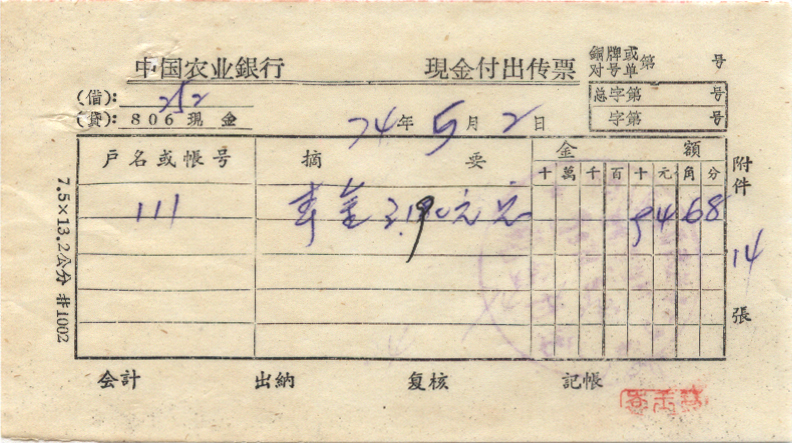 中国农业銀行 現金付出传票 銅牌或对号单第 号
(借): 252 总字第 号
(貸): 806 現金 74年 5月 2日 字第 号
户名或帳号 摘 要 金 額
十 萬 千 百 十 元 角 分
111 元 94 68
附件 14 張
7.5×13.2公分 #1002
会計 出納 复核 記帳